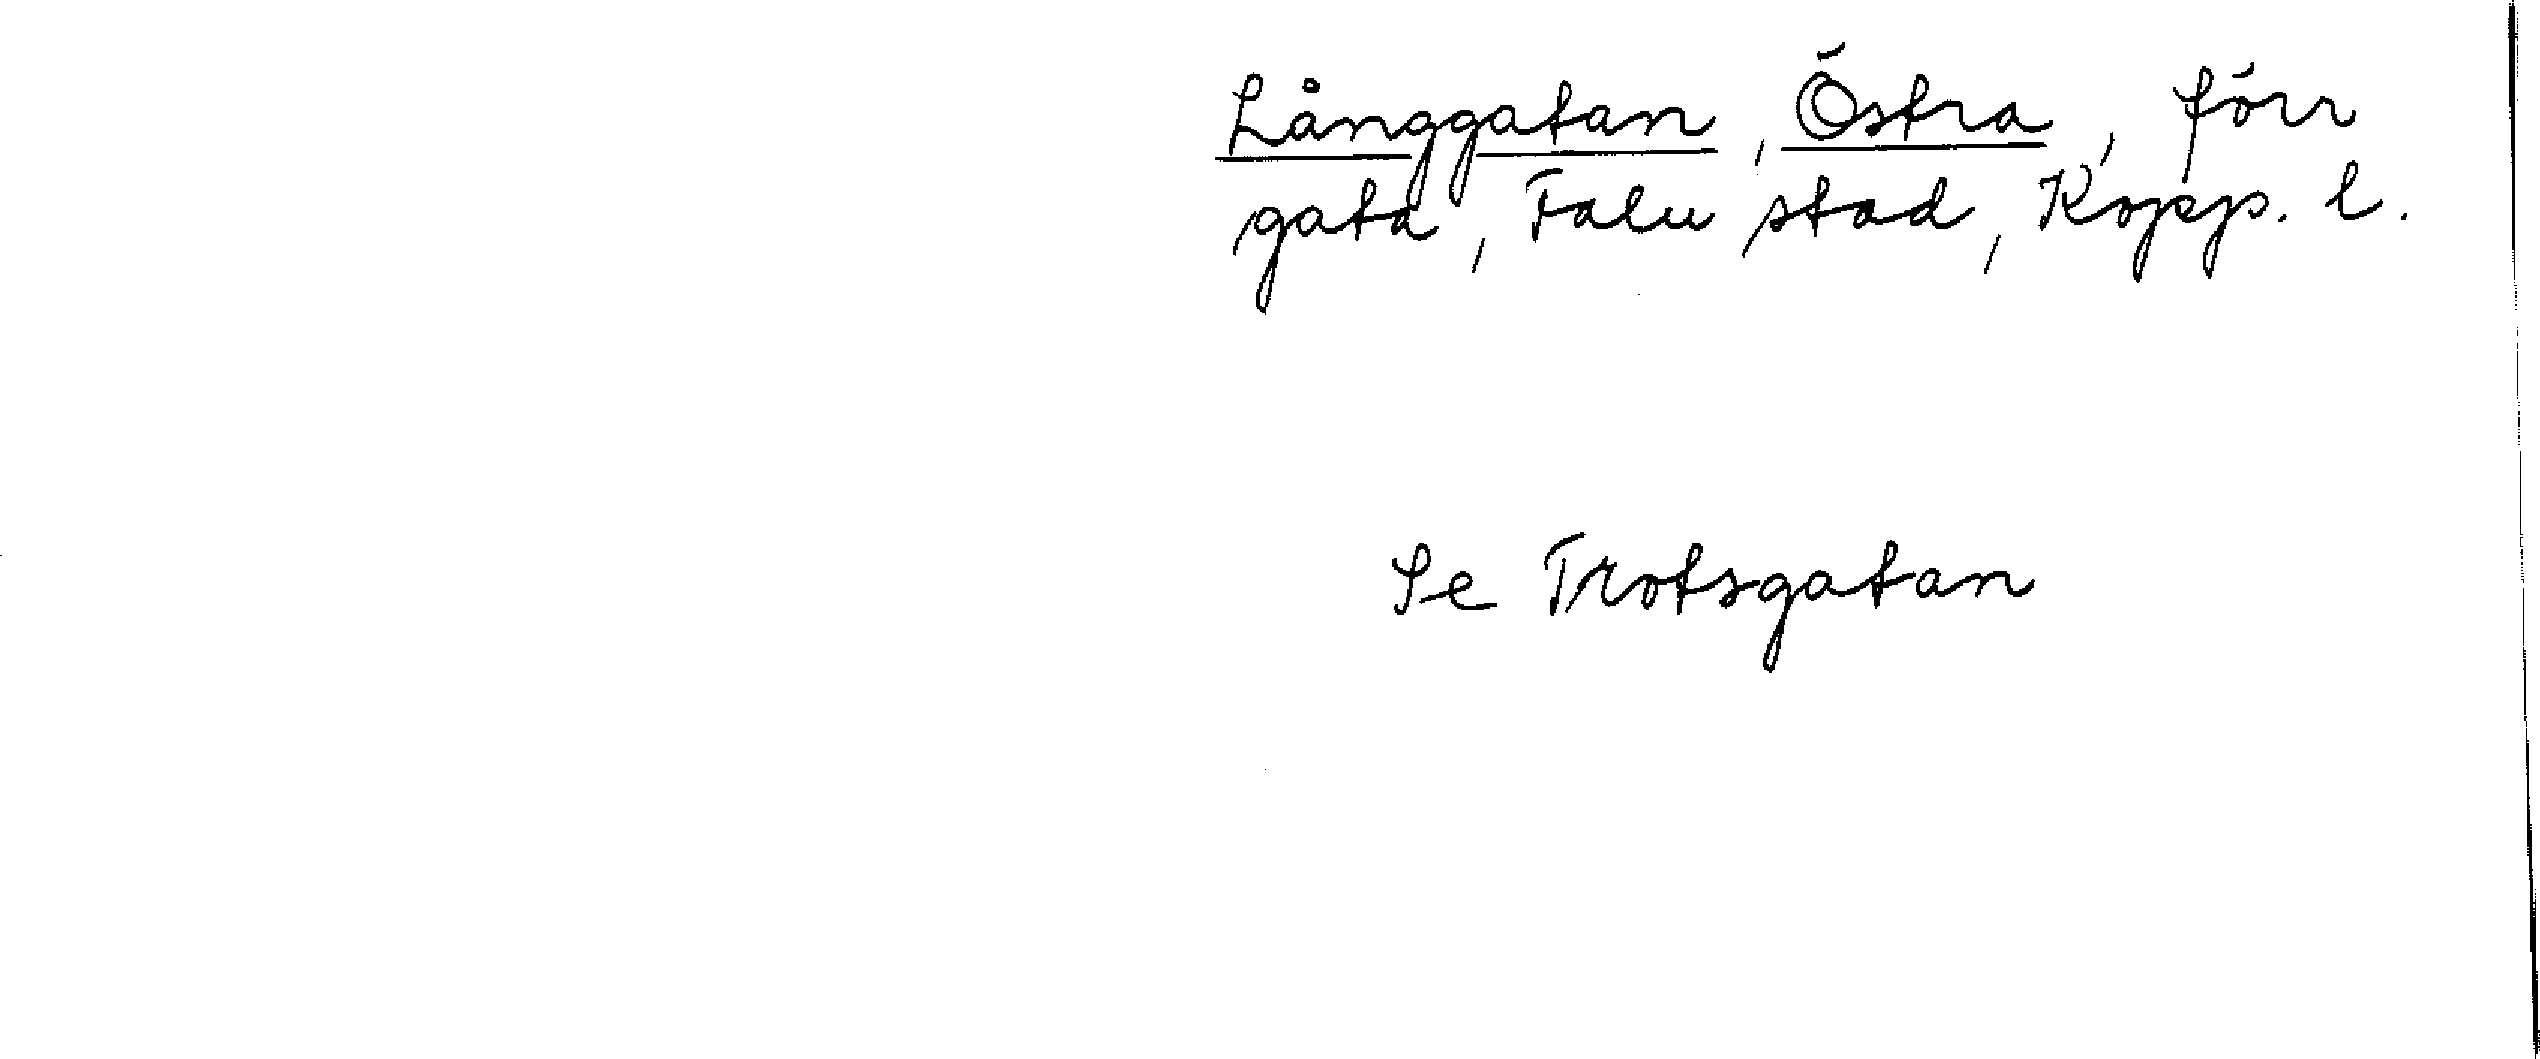 Långgatan, Östra, förr
gata, Falu stad, Kopp. l.
Se Trotsgatan